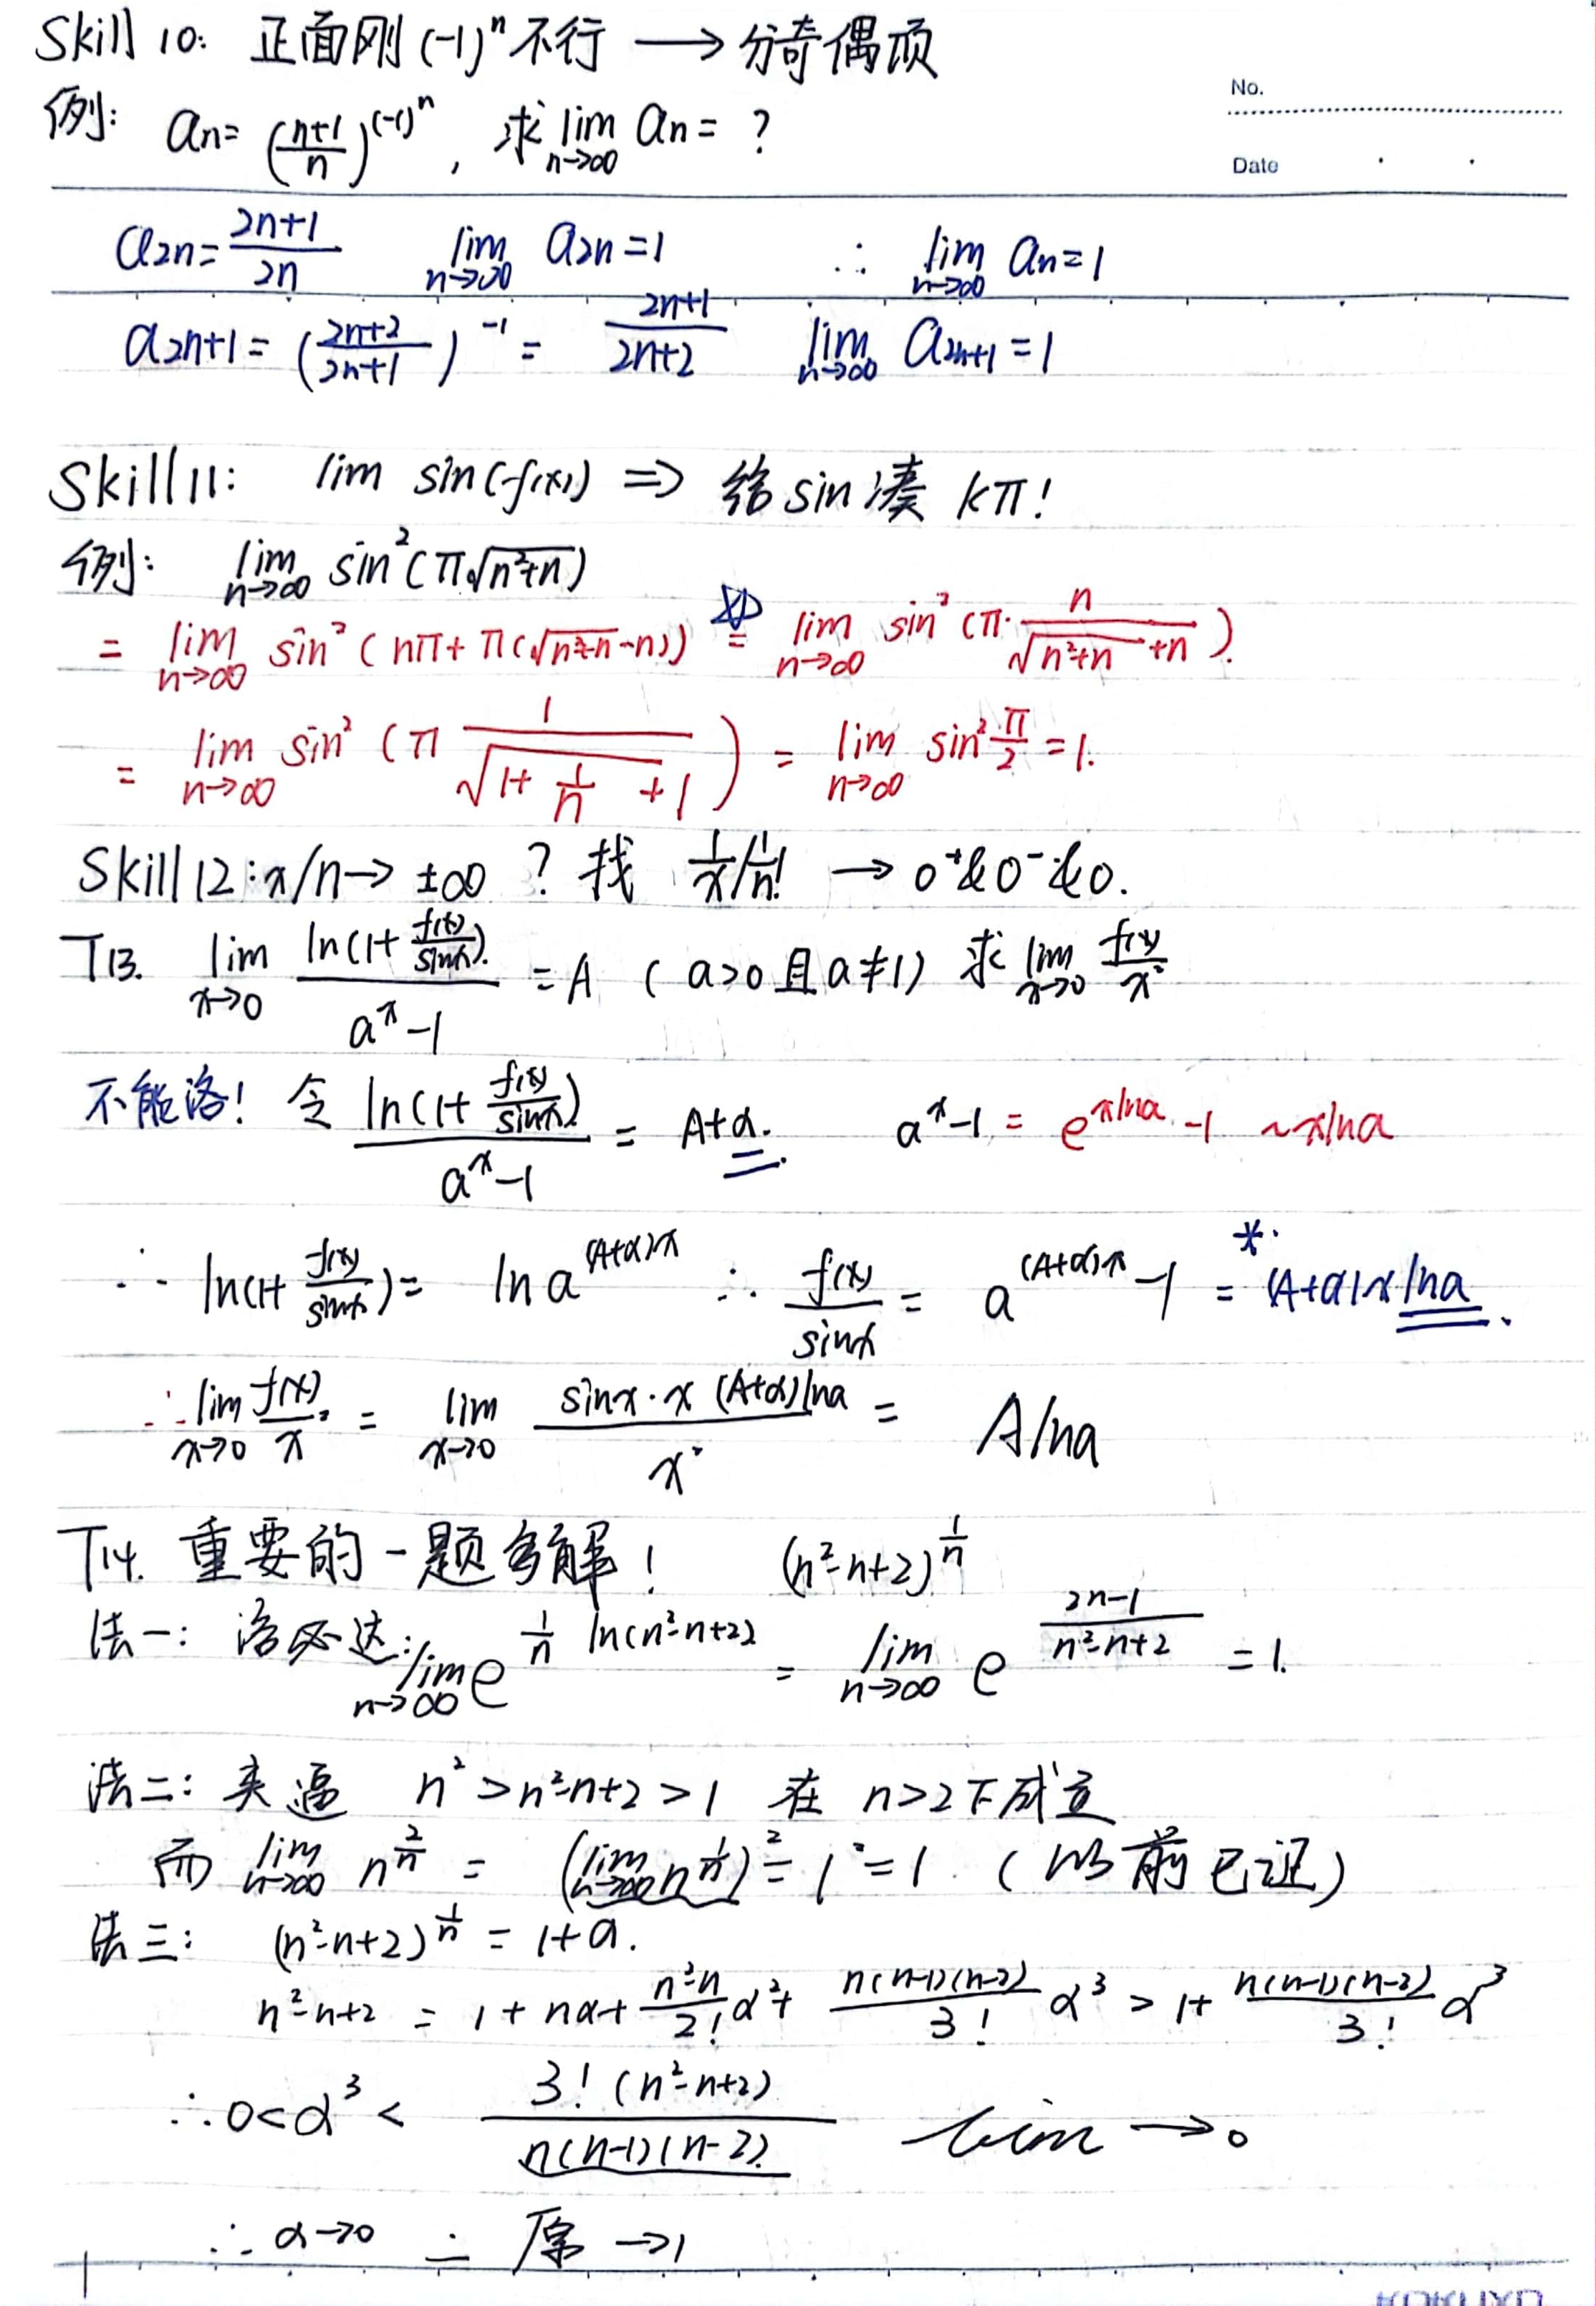 Skill 10: 正面刚 (-1)ⁿ 不行 → 分奇偶项
No.
例: aₙ = ((n+1)/n)^((-1)ⁿ) , 求 lim_{n→∞} aₙ = ?
Date
a₂ₙ = (2n+1)/(2n) lim_{n→∞} a₂ₙ = 1 ∴ lim_{n→∞} aₙ = 1
a₂ₙ₊₁ = ((2n+2)/(2n+1))⁻¹ = (2n+1)/(2n+2) lim_{n→∞} a₂ₙ₊₁ = 1
Skill 11: lim sin(f(x)) ⇒ 给 sin 凑 kπ!
例: lim_{n→∞} sin²(π√(n²+n))
= lim_{n→∞} sin²(nπ + π(√(n²+n) - n)) = lim_{n→∞} sin²(π·n/(√(n²+n) + n)).
= lim_{n→∞} sin²(π 1/(√(1+1/n) + 1)) = lim_{n→∞} sin² π/2 = 1.
Skill 12: x/n → ±∞ ? 找 1/x / 1/n! → 0⁺ & 0⁻ & 0.
T13. lim_{x→0} ln(1+f(x)/sinx)/(aˣ-1) = A (a>0 且 a≠1) 求 lim_{x→0} f(x)/x²
不能洛! 令 ln(1+f(x)/sinx)/(aˣ-1) = A+α. aˣ-1 = e^(xlna) - 1 ~ xlna
∴ ln(1+f(x)/sinx) = ln a^((A+α)x) ∴ f(x)/sinx = a^((A+α)x) - 1 =* (A+α)x lna.
∴ lim_{x→0} f(x)/x² = lim_{x→0} sinx·x(A+α)lna / x² = Alna
T14. 重要的一题多解! (n²-n+2)^(1/n)
法一: 洛必达: lim_{n→∞} e^(1/n ln(n²-n+2)) = lim_{n→∞} e^((2n-1)/(n²-n+2)) = 1.
法二: 夹逼 n² > n²-n+2 > 1 在 n>2 下成立
而 lim_{n→∞} n^(2/n) = (lim_{n→∞} n^(1/n))² = 1² = 1. (以前已证)
法三: (n²-n+2)^(1/n) = 1+α.
n²-n+2 = 1 + nα + (n²-n)/2! α² + n(n-1)(n-2)/3! α³ > 1 + n(n-1)(n-2)/3! α³
∴ 0 < α³ < 3!(n²-n+2)/(n(n-1)(n-2)) lim → 0
∴ α→0 ∴ 原 →1